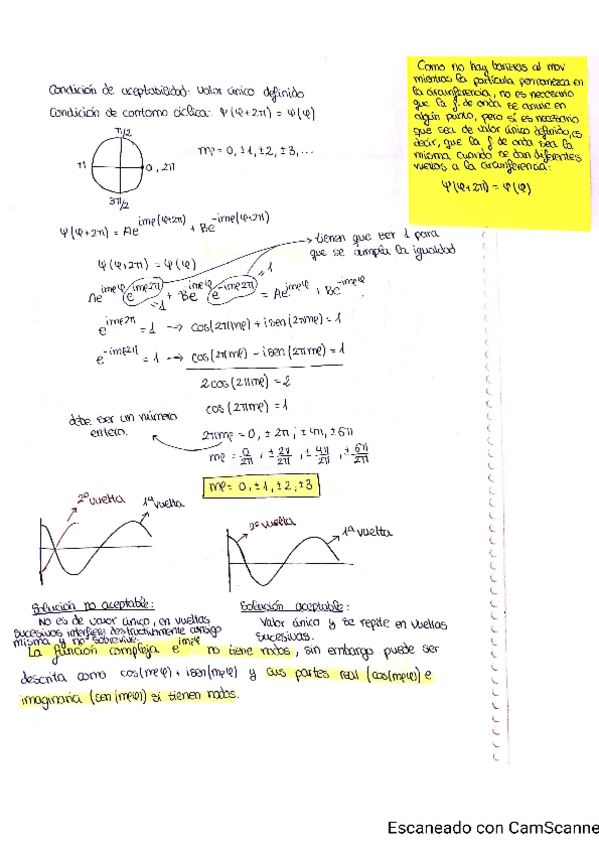 Condición de aceptabilidad: valor único definido
Condición de contorno cíclica: Ψ(φ+2π) = Ψ(φ)
Como no hay barreras al mov
mientras la partícula permanezca en
la circunferencia, no es necesario
que la f. de onda se anule en
algún punto, pero sí es necesario
que sea de valor único definido, es
decir, que la f de onda sea la
misma cuando se dan diferentes
vueltas a la circunferencia:
Ψ(φ+2π) = Ψ(φ)
π/2
π
0, 2π
3π/2
mℓ = 0, ±1, ±2, ±3, ...
Ψ(φ+2π) = Ae^imℓ(φ+2π) + Be^-imℓ(φ+2π)
tienen que ser 1 para
que se cumpla la igualdad
Ψ(φ+2π) = Ψ(φ)
Ae^imℓφ e^imℓ2π + Be^imℓφ e^-imℓ2π = Ae^imℓφ + Be^-imℓφ
=1
=1
e^imℓ2π = 1 → cos(2πmℓ) + isen(2πmℓ) = 1
e^-imℓ2π = 1 → cos(2πmℓ) - isen(2πmℓ) = 1
2cos(2πmℓ) = 2
cos(2πmℓ) = 1
debe ser un número
entero.
2πmℓ = 0, ±2π, ±4π, ±6π
mℓ = 0/2π, ±2π/2π, ±4π/2π, ±6π/2π
mℓ = 0, ±1, ±2, ±3
2º vuelta
1ª vuelta
2º vuelta
1ª vuelta
Solución no aceptable:
No es de valor único, en vueltas
sucesivas interfiere destructivamente consigo
misma y no sobrevive.
Solución aceptable:
Valor único y se repite en vueltas
sucesivas.
La función compleja e^imℓφ no tiene nodos, sin embargo puede ser
descrita como cos(mℓφ) + isen(mℓφ) y sus partes real (cos(mℓφ)) e
imaginaria (sen(mℓφ)) sí tienen nodos.
Escaneado con CamScanne